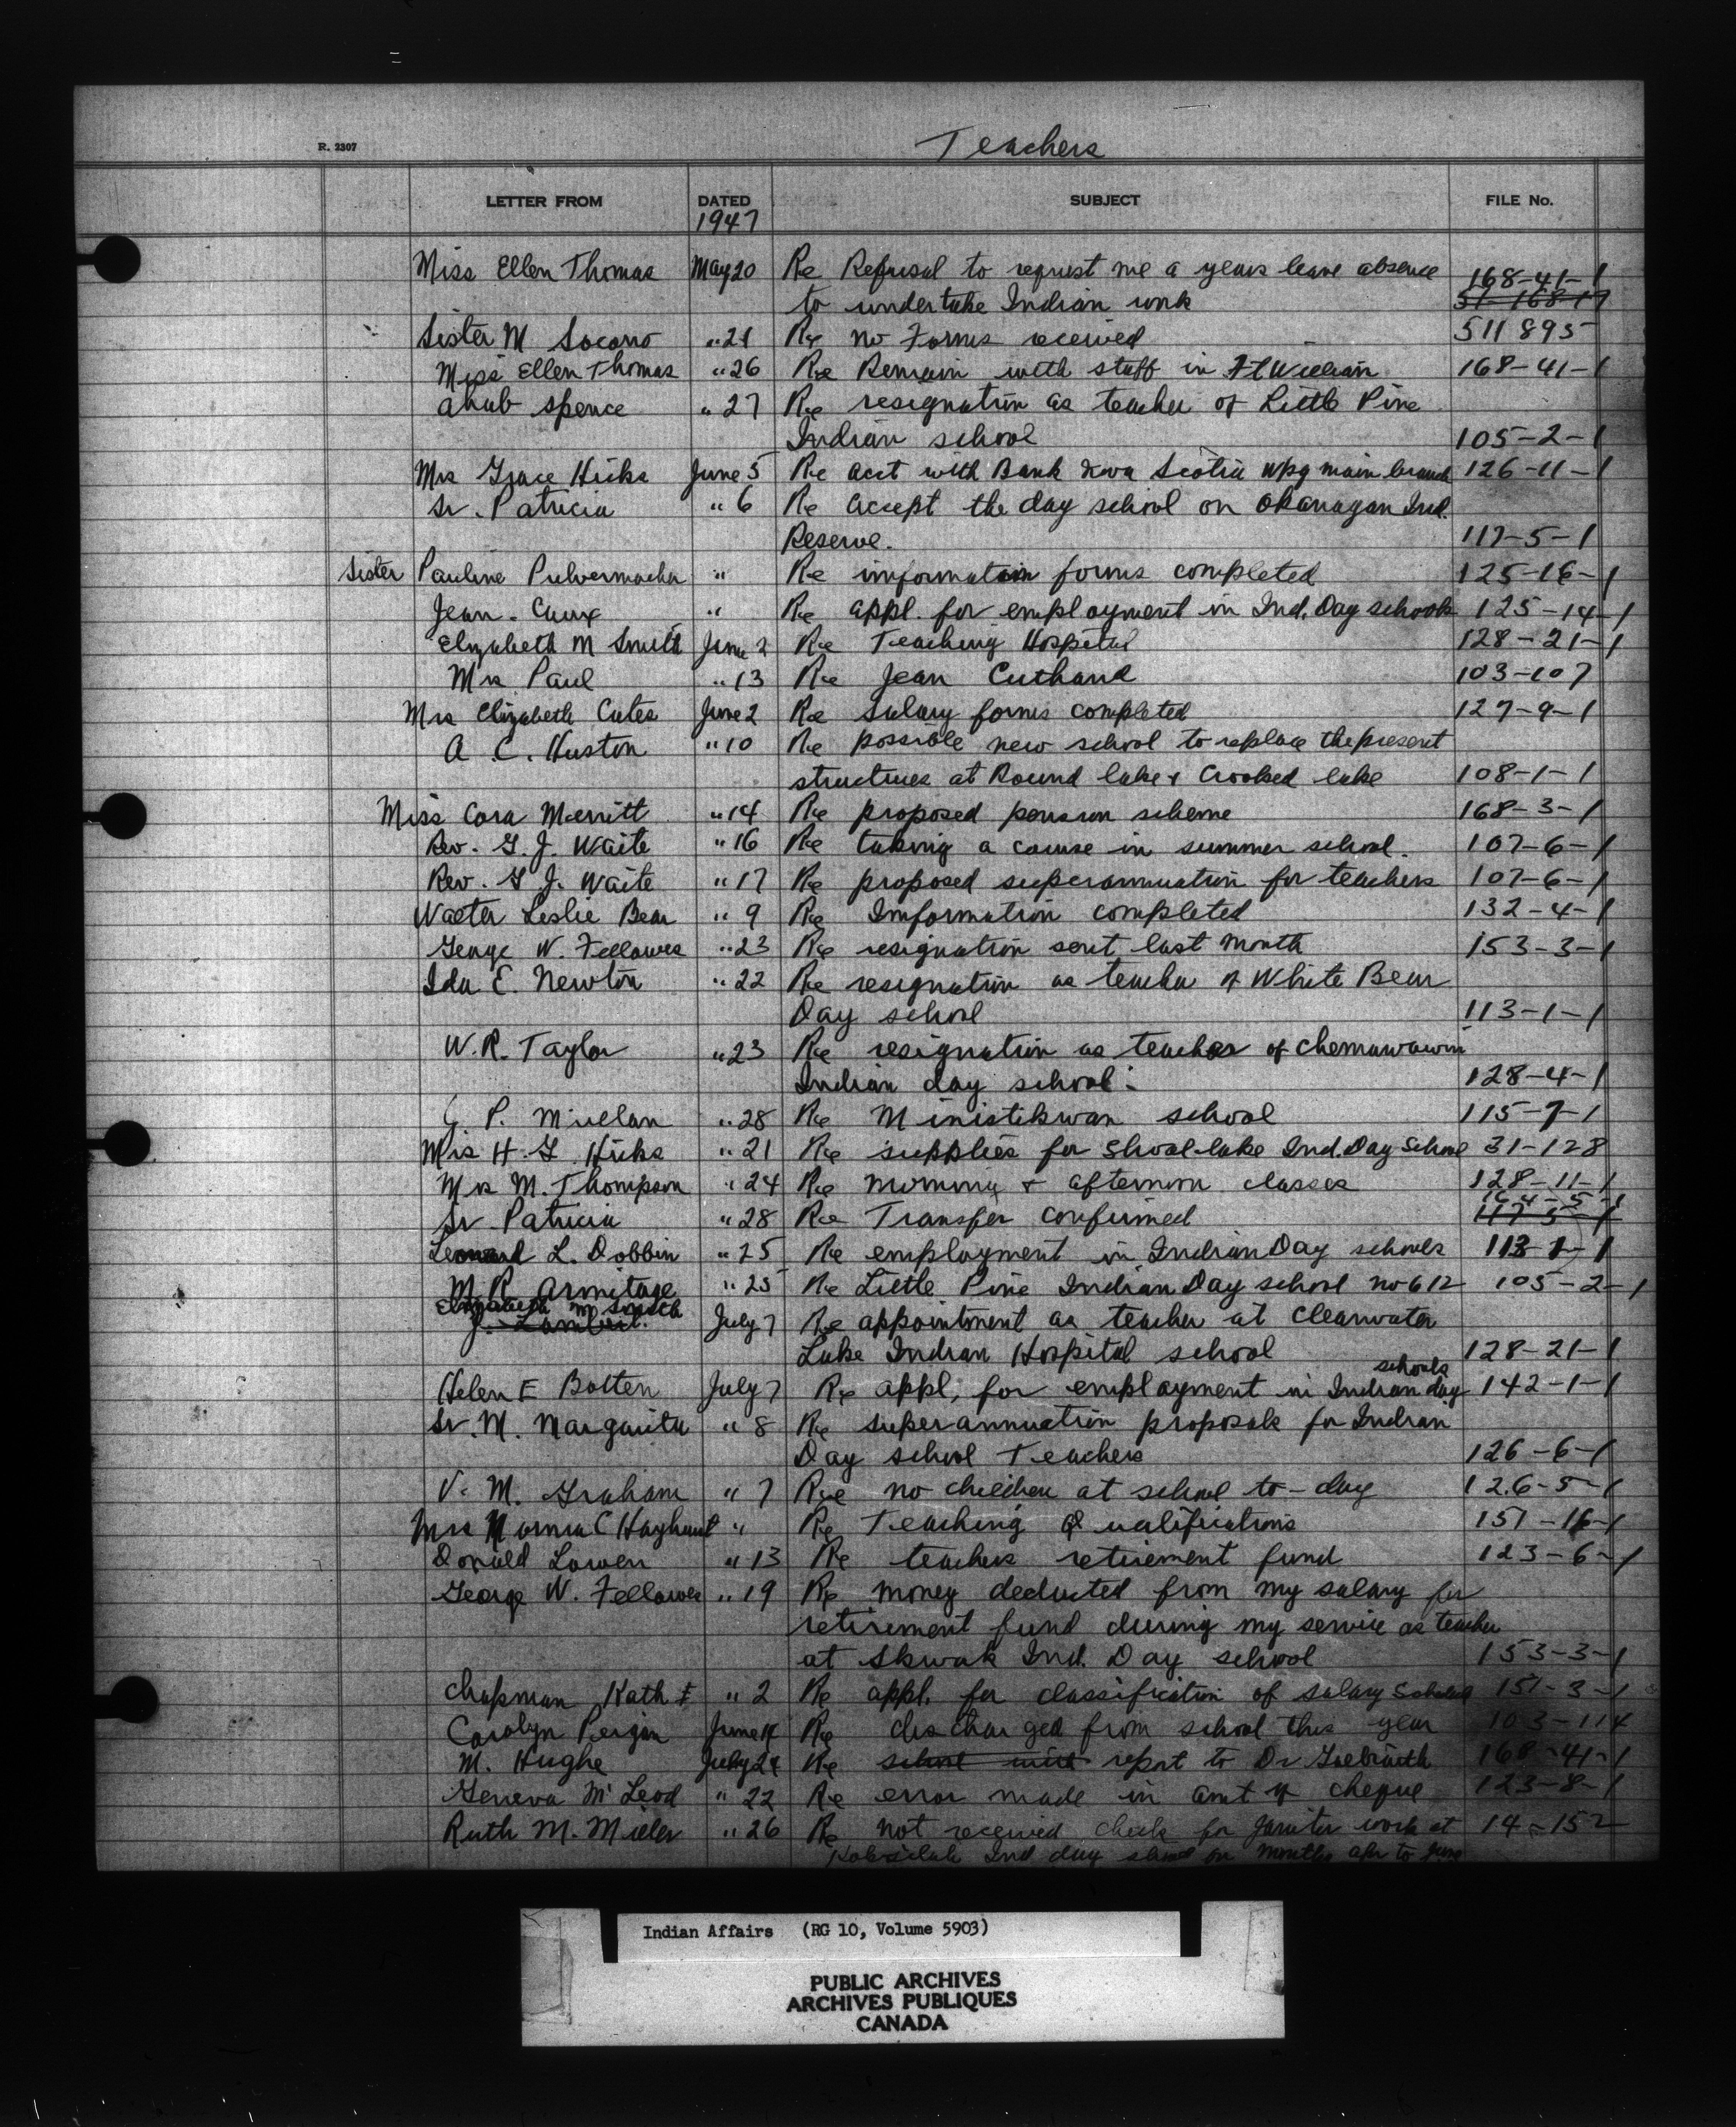 Teachers
R. 2307
LETTER FROM DATED SUBJECT FILE No.
1947
Miss Ellen Thomas May 20 Re Refusal to request me a years leave absence 168-41-1
to undertake Indian work 51-168-17
Sister M Socorro " 21 Re no Forms received 511895
Miss Ellen Thomas " 26 Re Remain with staff in Ft William 168-41-1
Ahab Spence " 27 Re resignation as teacher of Little Pine
Indian school 105-2-1
Mrs Grace Hicks June 5 Re acct with Bank Nova Scotia Wpg main branch 126-11-1
Sr. Patricia " 6 Re accept the day school on Okanagan Ind.
Reserve. 117-5-1
Sister Pauline Pulvermacher " Re imformation forms completed 125-16-1
Jean " Re appl. for employment in Ind. Day schools 125-14-1
Elizabeth M Smith June 2 Re Teaching Hospital 128-21-1
Mrs Paul " 13 Re Jean Cuthand 103-107
Mrs Elizabeth Cates June 2 Re Salary forms completed 127-9-1
A. C. Huston " 10 Re possible new school to replace the present
structures at Round lake & Crooked lake 108-1-1
Miss Cora Merritt " 14 Re proposed pension scheme 168-3-1
Rev. G. J. Waite " 16 Re taking a course in summer school. 107-6-1
Rev. G J. Waite " 17 Re proposed superannuation for teachers 107-6-1
Walter Leslie Bear " 9 Re Imformation completed 132-4-1
George W. Fellowes " 23 Re resignation sent last month 153-3-1
Ida E. Newton " 22 Re resignation as teacher of White Bear
Day school 113-1-1
W. R. Taylor " 23 Re resignation as teacher of Chemawawin
Indian day school. 128-4-1
P. " 28 Re Ministikwan school 115-7-1
Mrs H. G Hicks " 21 Re supplies for Shoal-lake Ind. Day School 31-128
Mrs M. Thompson " 24 Re morning & afternoon classes 128-11-1
164-5-1
Sr. Patricia " 28 Re Transfer confirmed 117-5-1
Leonard L. Dobbin " 25 Re employment in Indian Day schools 113-1-1
M. R. Armitage " 25 Re Little Pine Indian Day school no 612 105-2-1
Elizabeth M Smith
J. Lambert. July 7 Re appointment as teacher at Clearwater
Lake Indian Hospital school 128-21-1
schools
Helen E Botten July 7 Re appl. for employment in Indian day 142-1-1
Sr. M. Margarita " 8 Re superannuation proposals for Indian
Day school Teachers 126-6-1
V. M. Graham " 7 Re no children at school to-day 126-5-1
Mrs Norma C Hayhurst " Re Teaching Qualifications 151-16-1
Donald Lowen " 13 Re teachers retirement fund 123-6-1
George W. Fellowes " 19 Re money deducted from my salary for
retirement fund during my service as teacher
at Skwak Ind. Day school 153-3-1
Chapman Kath E " 2 Re appl. for classification of salary 151-3-1
Carolyn June 14 Re discharged from school this year 103-114
M. Hughe July 24 Re school with report to Dr 168-41-1
Geneva McLeod " 22 Re error made in amt of cheque 123-8-1
Ruth M. Miller " 26 Re not received check for janitor work at 14-152
Ind day school for months apr to June
Indian Affairs (RG 10, Volume 5903)
PUBLIC ARCHIVES
ARCHIVES PUBLIQUES
CANADA